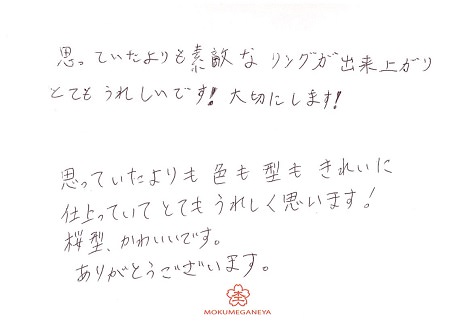 思っていたよりも素敵なリングが出来上がり
とてもうれしいです!大切にします!
思っていたよりも色も型もきれいに
仕上っていてとてもうれしく思います!
桜型、かわいいです。
ありがとうございます。
杢
MOKUMEGANEYA